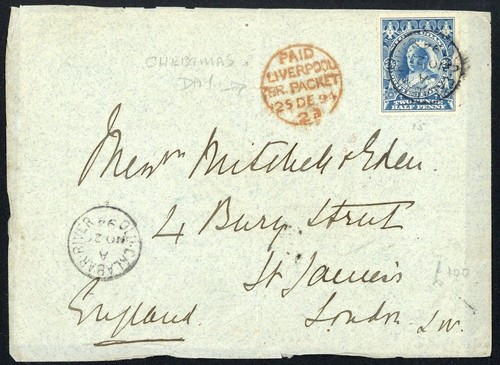 CHRISTMAS
DAY
PAID
LIVERPOOL
BR. PACKET
25 DE 94
2a
TWO PENCE
HALF PENNY
15
Messrs Mitchell & Eden.
4 Bury Street
St James's
London S.W.
England
OLD CALABAR RIVER
A
NO 2
94
£100